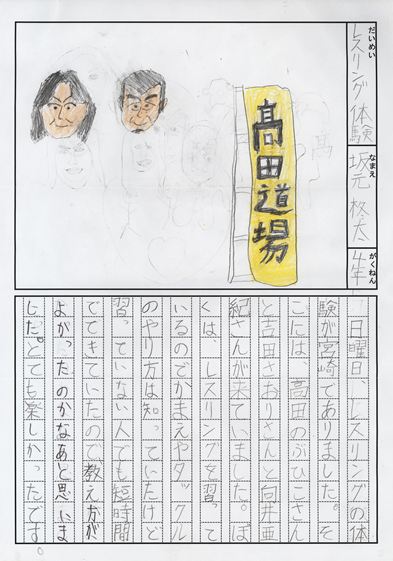 だいめい
レスリング体験
なまえ
坂元 柊太
がくねん
4年
髙田道場
日曜日、レスリングの体
験が宮崎でありました。そ
こには、高田のぶひこさん
と吉田さおりさんと向井亜
紀さんが来ていました。ぼ
くは、レスリングを習って
いるのでかまえやタックル
のやり方は知っていたけど
習っていない人でも短時間
でできていたので、教え方が
よかったのかなあと思いま
した。とても楽しかったです。